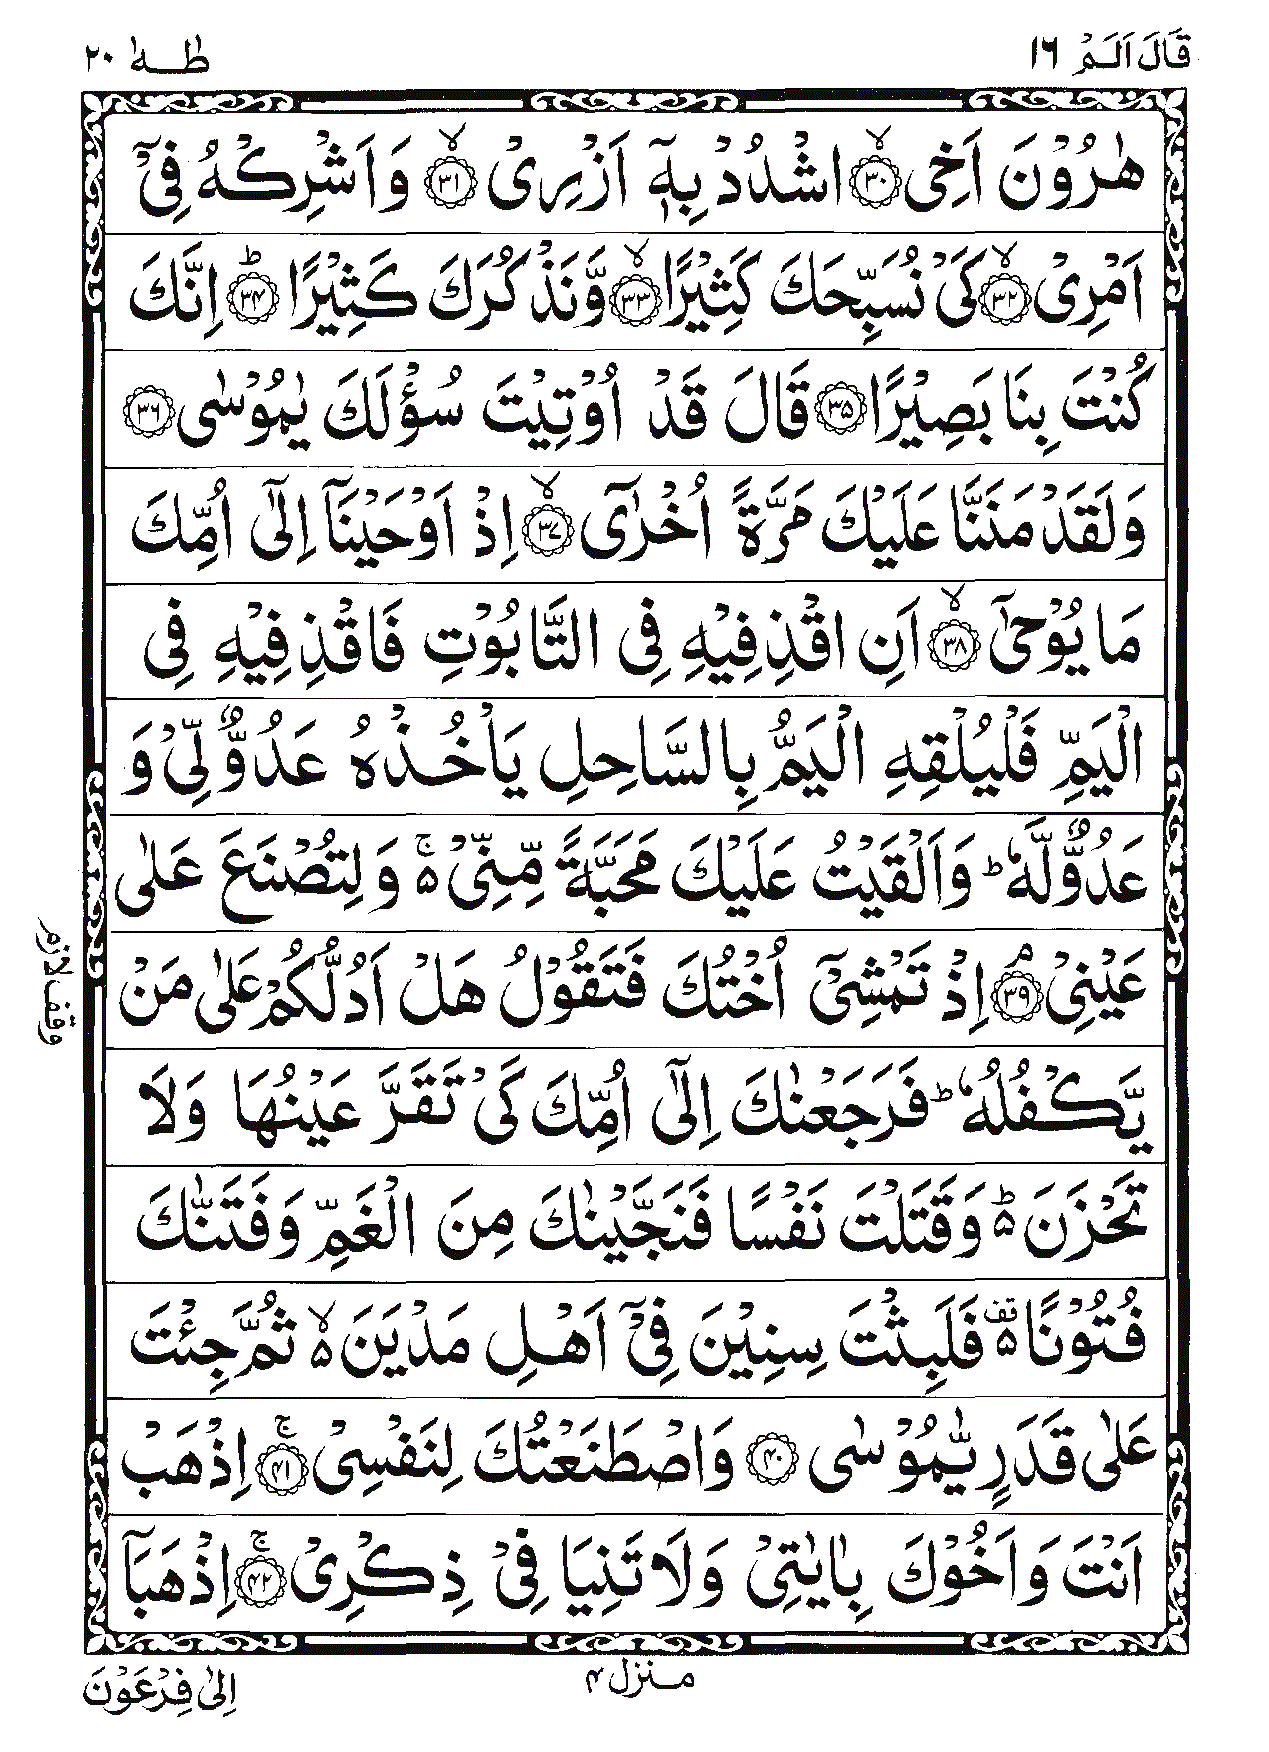 قَالَ اَلَمْ ١٦
طٰهٰ ٢٠
هٰرُوْنَ اَخِی ۙ﴿۳۰﴾ اشْدُدْ بِهٖۤ اَزْرِیْ ۙ﴿۳۱﴾ وَاَشْرِكْهُ فِیْۤ
اَمْرِیْ ۙ﴿۳۲﴾ كَیْ نُسَبِّحَكَ كَثِیْرًا ۙ﴿۳۳﴾ وَّنَذْكُرَكَ كَثِیْرًا ؕ﴿۳۴﴾ اِنَّكَ
كُنْتَ بِنَا بَصِیْرًا ﴿۳۵﴾ قَالَ قَدْ اُوْتِیْتَ سُؤْلَكَ یٰمُوْسٰی ﴿۳۶﴾
وَلَقَدْ مَنَنَّا عَلَیْكَ مَرَّةً اُخْرٰۤی ۙ﴿۳۷﴾ اِذْ اَوْحَیْنَاۤ اِلٰۤی اُمِّكَ
مَا یُوْحٰۤی ۙ﴿۳۸﴾ اَنِ اقْذِفِیْهِ فِی التَّابُوْتِ فَاقْذِفِیْهِ فِی
الْیَمِّ فَلْیُلْقِهِ الْیَمُّ بِالسَّاحِلِ یَاْخُذْهُ عَدُوٌّ لِّیْ وَ
عَدُوٌّ لَّهٗ ؕ وَاَلْقَیْتُ عَلَیْكَ مَحَبَّةً مِّنِّیْ ۵ۚ وَلِتُصْنَعَ عَلٰی
عَیْنِیْ ۘ﴿۳۹﴾ اِذْ تَمْشِیْۤ اُخْتُكَ فَتَقُوْلُ هَلْ اَدُلُّكُمْ عَلٰی مَنْ
وقف لازم
یَّكْفُلُهٗ ؕ فَرَجَعْنٰكَ اِلٰۤی اُمِّكَ كَیْ تَقَرَّ عَیْنُهَا وَلَا
تَحْزَنَ ۵ؕ وَقَتَلْتَ نَفْسًا فَنَجَّیْنٰكَ مِنَ الْغَمِّ وَفَتَنّٰكَ
فُتُوْنًا ۵قف فَلَبِثْتَ سِنِیْنَ فِیْۤ اَهْلِ مَدْیَنَ ۵ۙ ثُمَّ جِئْتَ
عَلٰی قَدَرٍ یّٰمُوْسٰی ﴿۴۰﴾ وَاصْطَنَعْتُكَ لِنَفْسِیْ ۚ﴿۴۱﴾ اِذْهَبْ
اَنْتَ وَاَخُوْكَ بِاٰیٰتِیْ وَلَا تَنِیَا فِیْ ذِكْرِیْ ۚ﴿۴۲﴾ اِذْهَبَاۤ
منزل ۴
اِلٰی فِرْعَوْنَ